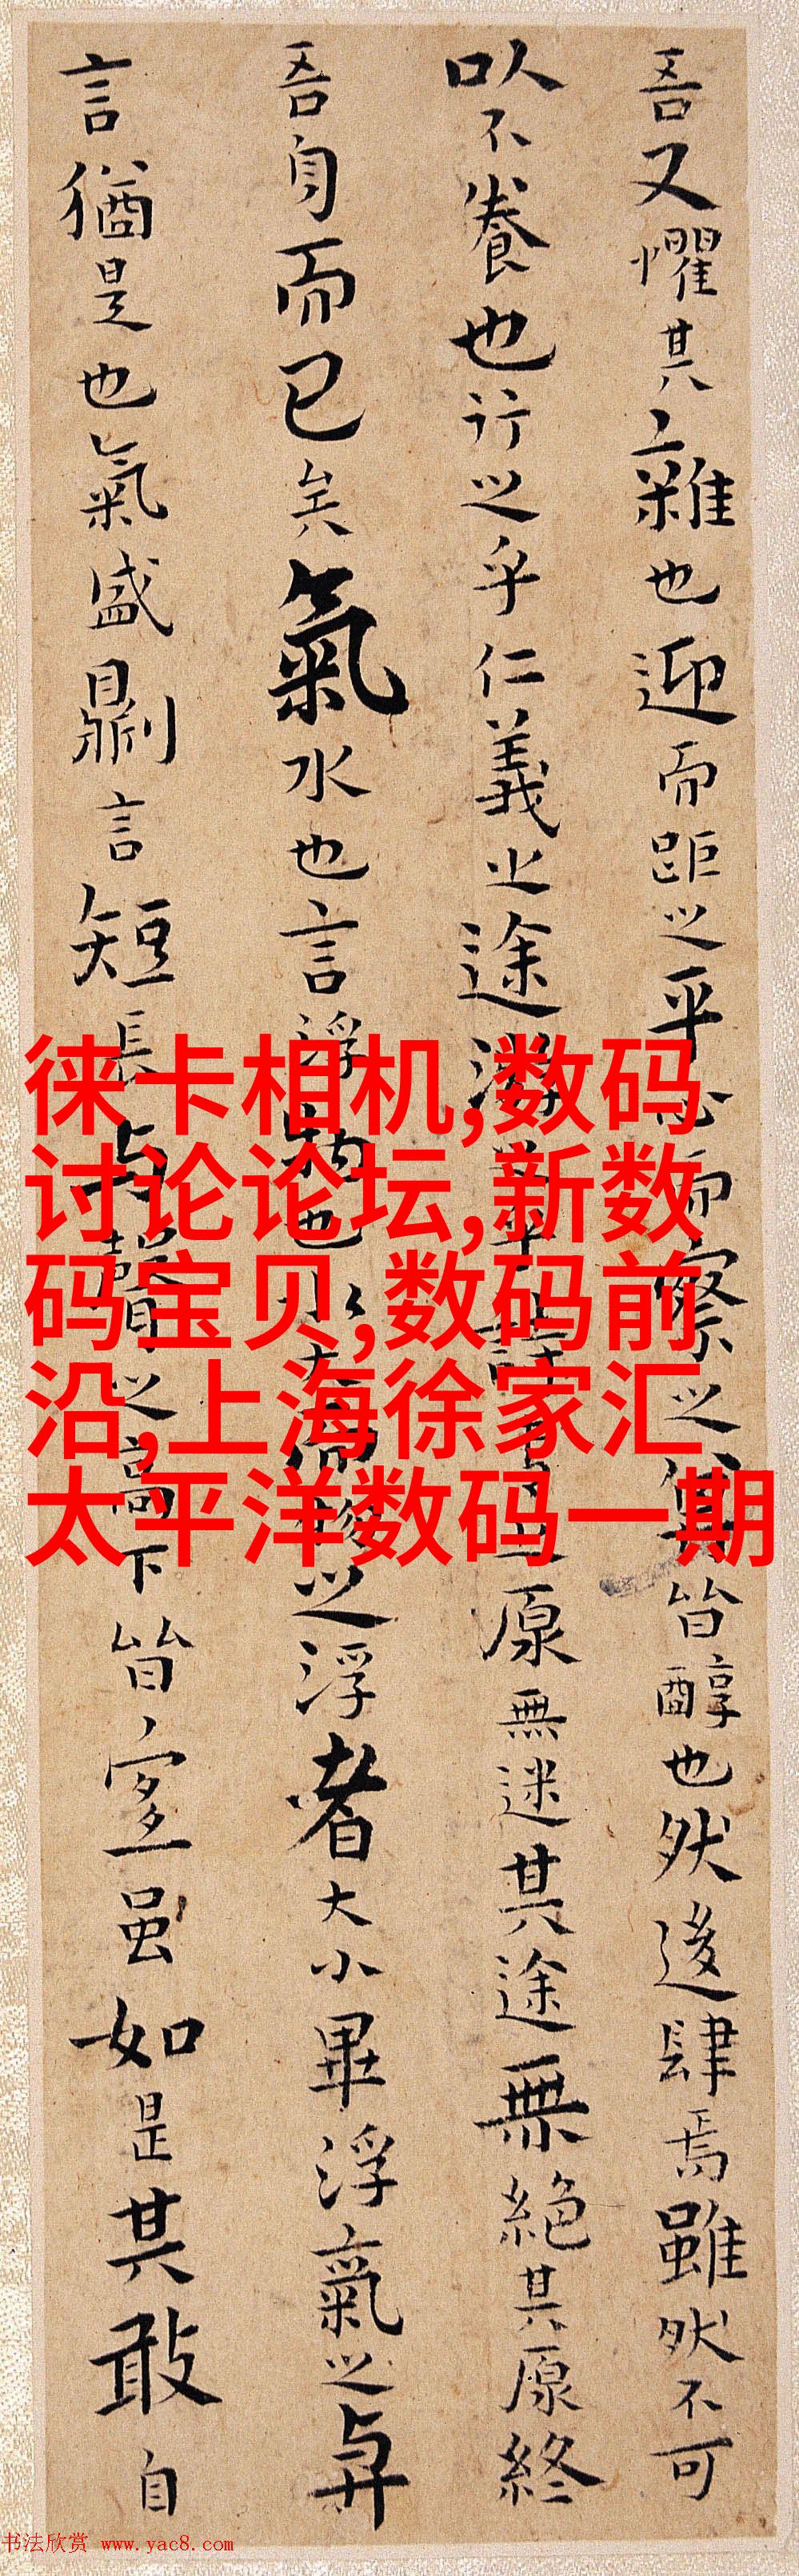 吾又懼其雜也迎而距之平心而察之其皆醇也然後肆焉雖然不可
以不養也行之乎仁義之途游
之原無迷其途無絕其原終
吾身而已矣氣水也言浮物也水大而
之浮者大小畢浮氣之與
言猶是也氣盛則言短長与聲之高下皆宜虽如是其敢自
徕卡相机,数码
讨论论坛,新数
码宝贝,数码前
沿,上海徐家汇
太平洋数码一期
书法欣赏 www.yac8.com